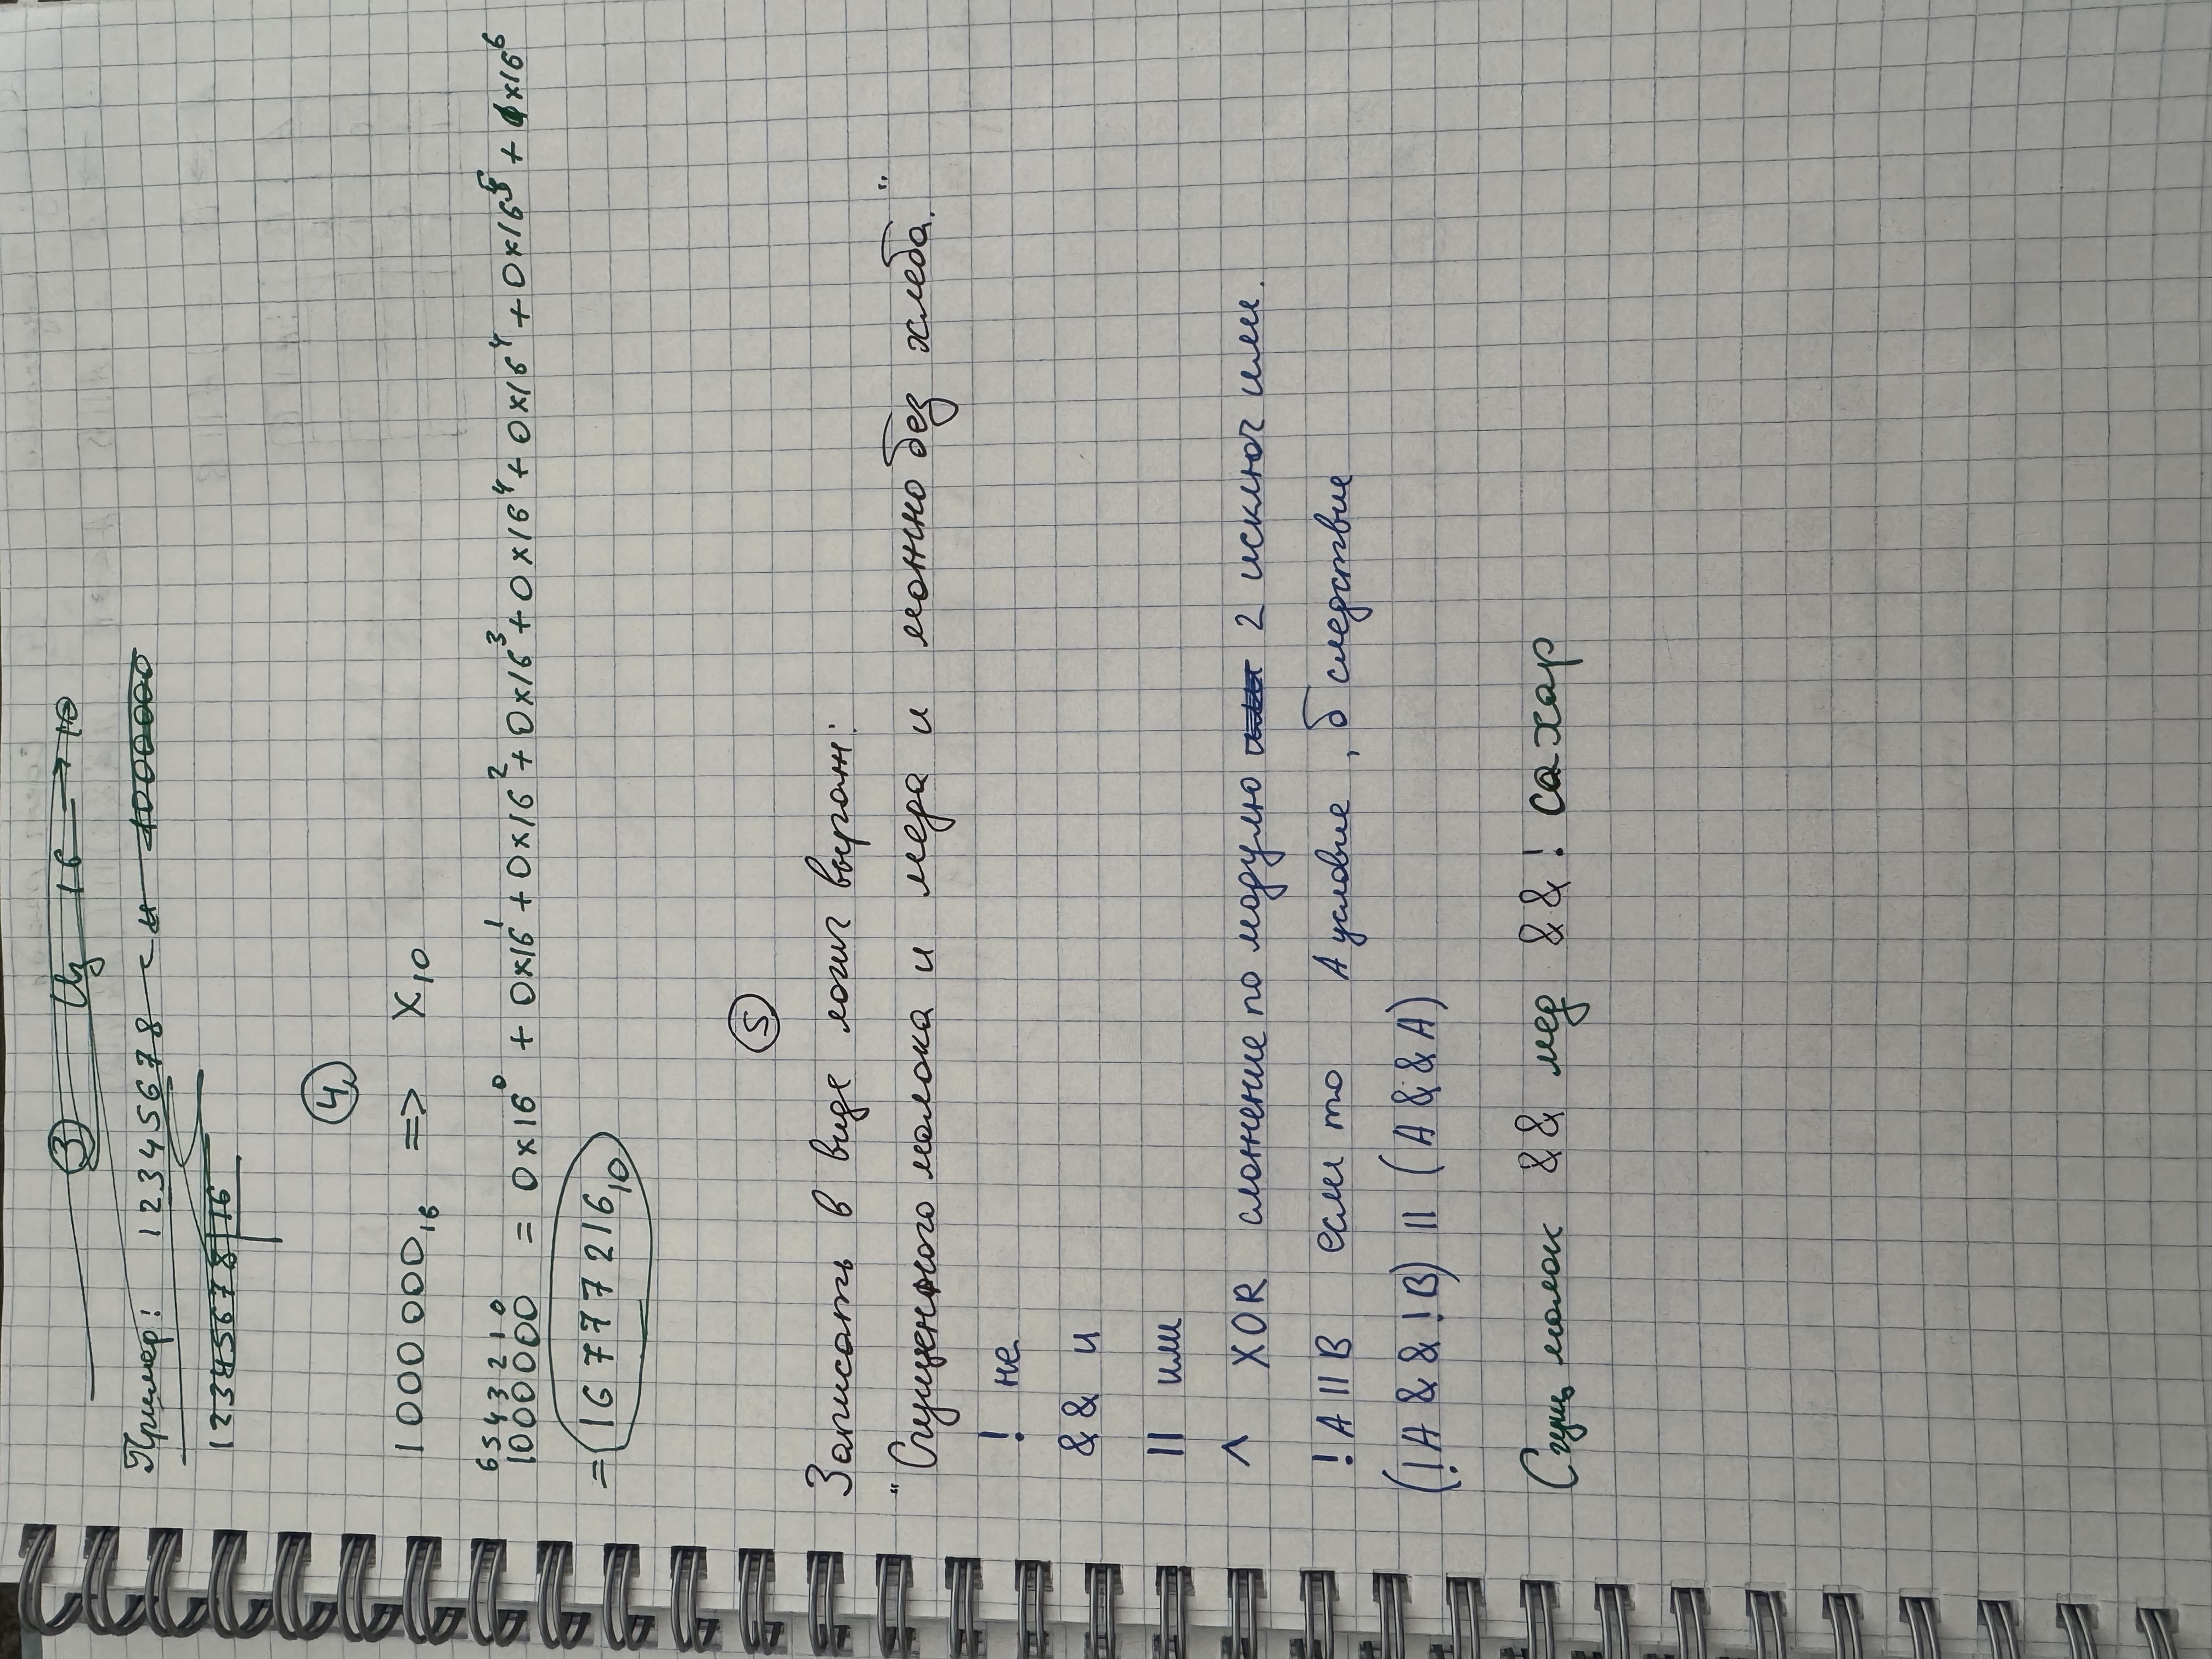 3 Из 16 → 10
Пример: 12345678 1000000
12345678 | 16
4
1000 000₁₆ => X₁₀
6 5 4 3 2 1 0
1000000 = 0×16⁰ + 0×16¹ + 0×16² + 0×16³ + 0×16⁴ + 0×16⁴ + 0×16⁵ + 1×16⁶
= 16 777 216₁₀
5
Записать в виде логич выраж:
"Сгущенного молока и меда и можно без хлеба."
! не
&& и
|| или
^ XOR сложение по модулю или 2 исключ или.
!A||B если то A условие, б следствие
(!A &&!B) || (A&&A)
Сгущ молок && мед &&! сахар